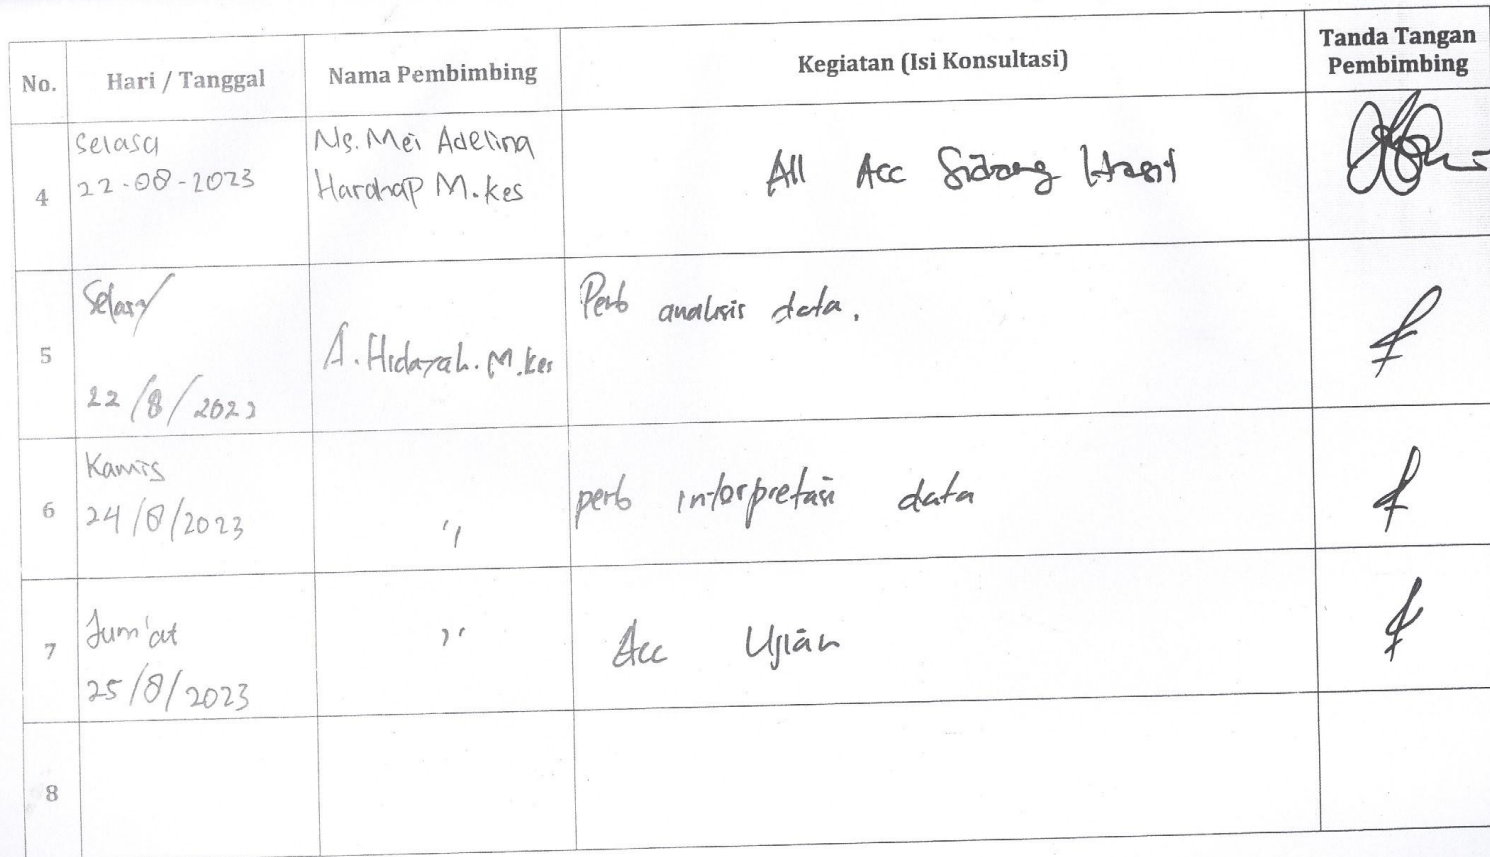 No.
Hari / Tanggal
Nama Pembimbing
Kegiatan (Isi Konsultasi)
Tanda Tangan
Pembimbing
4
Selasa
22-08-2023
Ns. Mei Adelina
Harahap M.kes
All Acc Sidang Hasil
5
Selasa/
22/8/2023
A. Hidayah. M.kes
Perb analisis data.
6
Kamis
24/8/2023
"
perb interpretasi data
7
Jum'at
25/8/2023
"
Acc Ujian
8